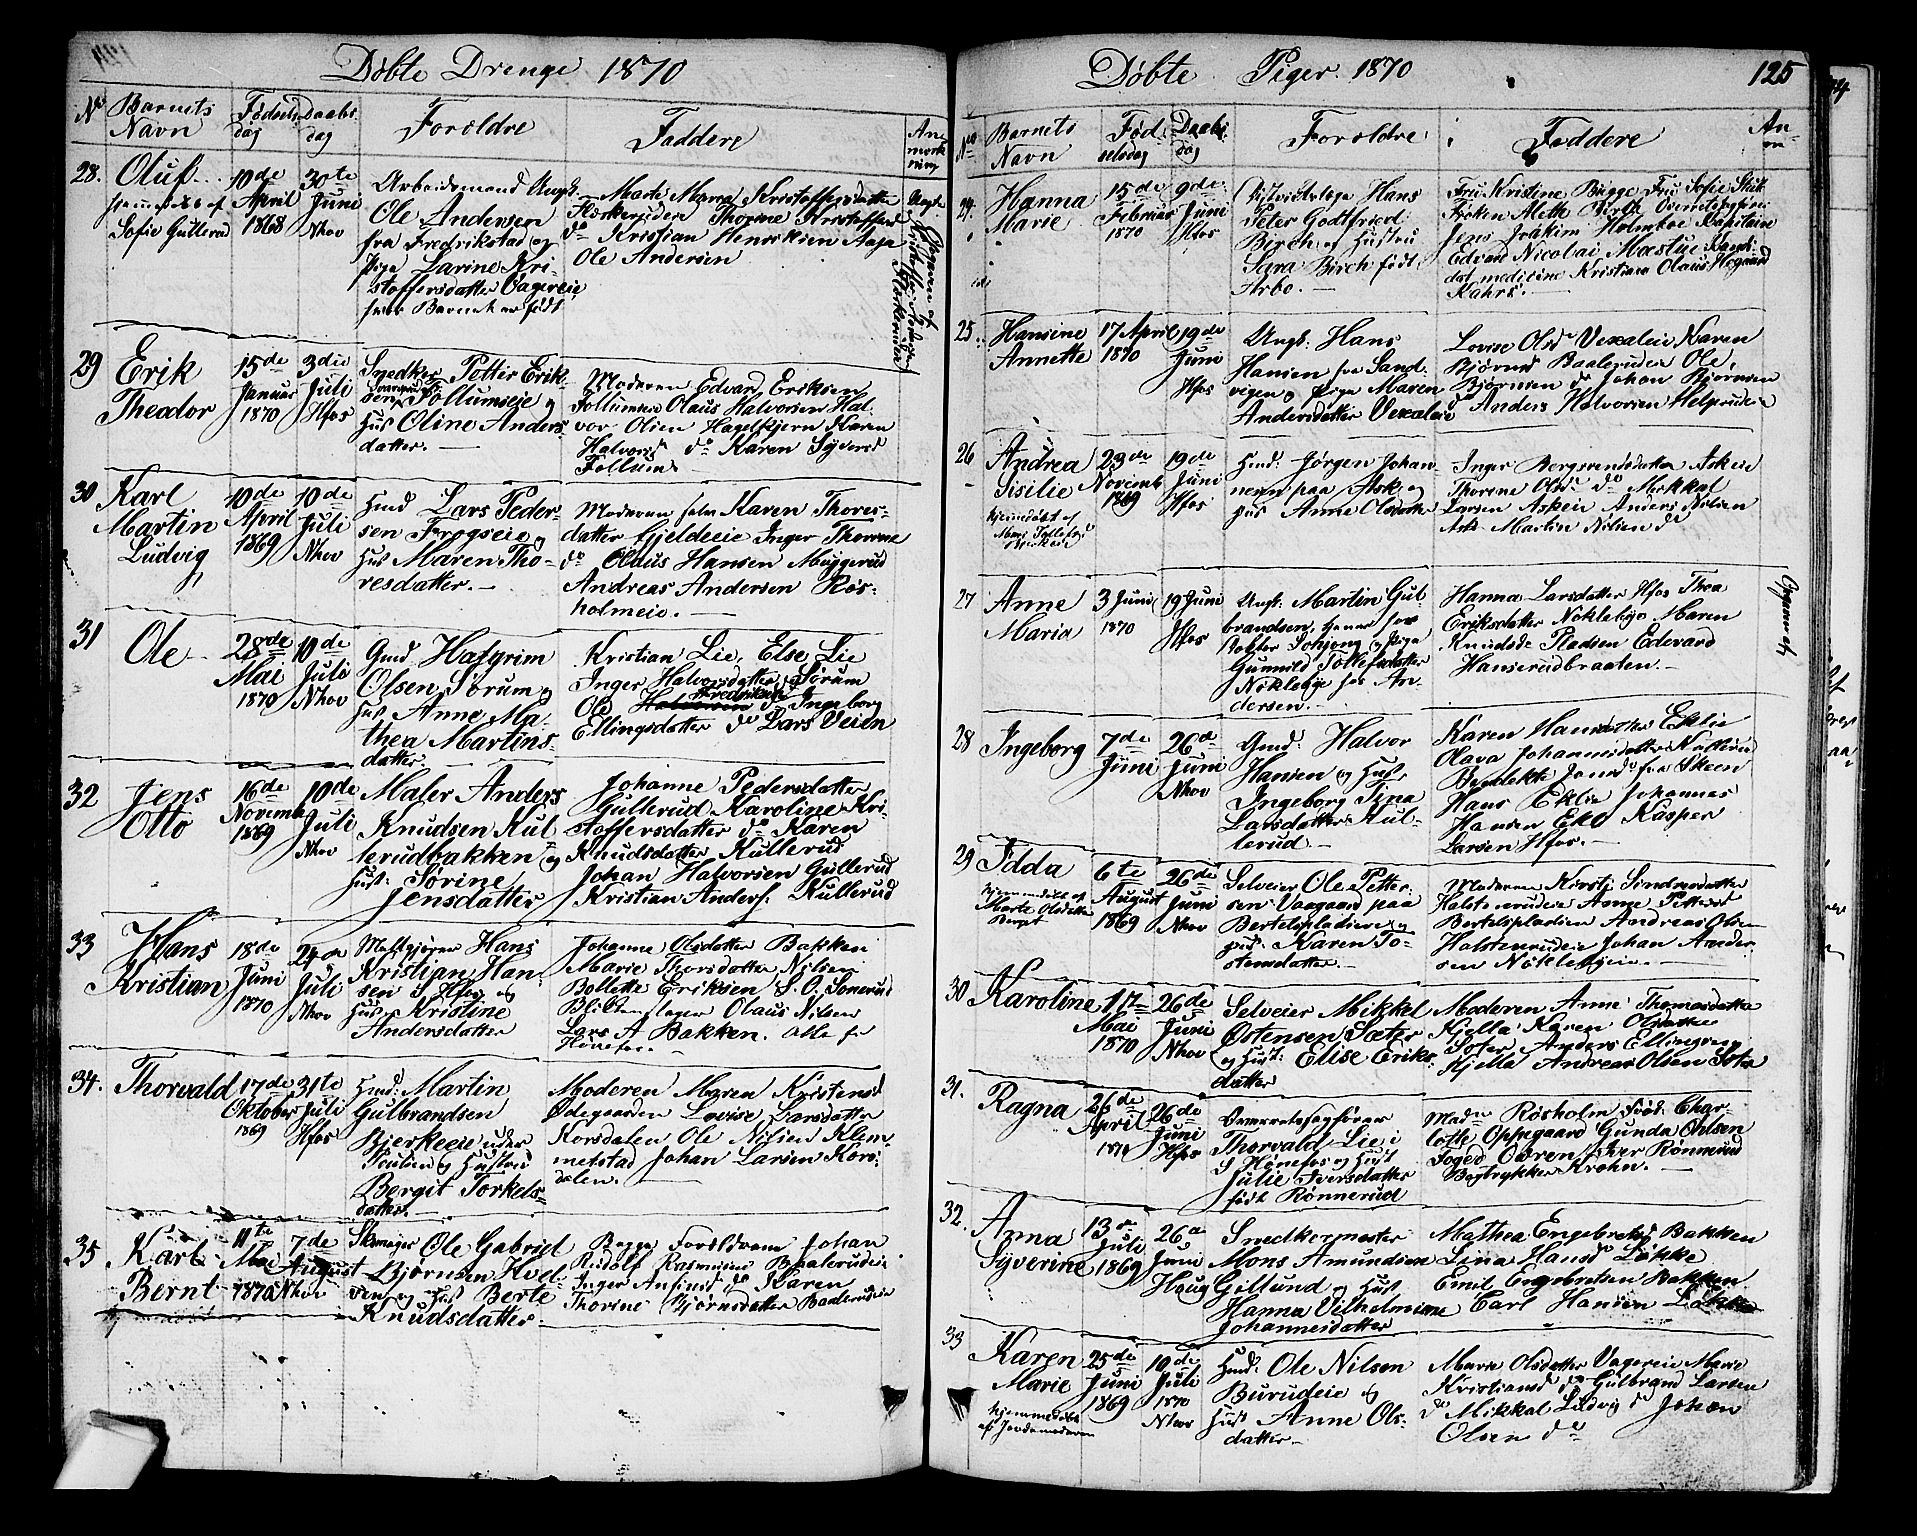 Døbte Drenge 1870
No Barnets Navn
Fødsels dag
Daabs dag
Forældre
Faddere
Anmerkning
28. Oluf
hjemmedøbt af
Sofie Gullerud
10de April 1868
30te Juni Nhov
Arbeidsmand Ungk.
Ole Andersen
fra Fredrikstad og
Pige Larine Kri-
stoffersdatter
hvor Barnet er født
Marte Maria Kristoffersdatter
Thorine Kristoffersd
do Kristian Henriksen Aasa
Ole Andersen
29 Erik
Theodor
15de Januar 1870
3die Juli Hfos
Snedker Petter Erik-
sen Follumseie og
Hus Oline Anders-
datter.
Moderen Edvard Eriksen
Follumseie Olaus Halvorsen Hal-
vor Olsen Karen
Halvorsd do Karen Syversd
Follum
30 Karl
Martin
Ludvig
10de April 1869
10de Juli Nhov
Hmd Lars Peder-
sen Frogseie og
Hus Maren Tho-
resdatter.
Moderen selv Karen Thores-
datter Fjeldeeie Inger Thorine
do Olaus Hansen Muggerud
Andreas Andersen Røs-
holmeie.
31 Ole
28de Mai 1870
10de Juli Nhov
Gmd Hafgrim
Olsen Sørum og
Hus Anne Ma-
thea Martins-
datter.
Kristian Lie, Else Lie
Inger Halvorsdatter Sørum
Ole Halvorsen Fredriksen do Ingeborg
Ellingsdatter do Lars Veien
32 Jens
Otto
16de Novemb 1869
10de Juli Nhov
Maler Anders
Knudsen Kul-
lerudbakken og
Hust: Sørine
Jensdatter
Johanne Pedersdatter
Gullerud Karoline Kri-
stoffersdatter do Karen
Knudsdatter Kullerud
Johan Halvorsen Gullerud
Kristian Anders: Kullerud
33 Hans
Kristian
18de Juni 1870
24de Juli Nhov
Hans
Kristian Han-
sen i Hfos og
Hus Kristine
Andersdatter
Johanne Olsdatter Bakken
Marie Thorsdatter Nilsen
Bollette Eriksen S. O. Semerud
Blikkenslager Olaus Nilsen
Lars A Bakken. alle fr
Hønefos.
34. Thorvald
17de Oktober 1869
31te Juli Hfos
Hmd: Martin
Gulbrandsen
Bjerkeeie under
og Hustru
Bergit Torkels-
datter.
Moderen Maren Kristensd
Ødegaarden Lovise Larsdatter
Korsdalen Ole Nilsen Klem-
metstad Johan Larsen Kors-
dalen.
35 Karl
Bernt
11te Mai 1870
7de August Nhov
Ole Gabriel
Bjørnsen Hval-
ven og Hust Berte
Knudsdatter.
Begge Forældrene Johan
Rudolf Rasmusen Baalerudeie
Inger do Karen
Thorine Bjørnsdatter Baalerudeie
Døbte Piger 1870
125
No Barnets Navn
Fødselsdag
Daabs dag
Forældre
Faddere
An-
24. Hanna
Marie
15de Februar 1870
9de Juni Hfos
Hans
Peter Gottfried
Birch og Hustru
Sara Birch født
Arbo.
Fru Kristine Bugge Fru Sofie
Frøken Alette Birch
Jens Joakim Holmboe Kapitain
Edvard Nicolai Mæstue Kandi-
dat medicine Kristian Olaus
25. Hansine
Annette
17 April 1870
19de Juni Hfos
Ungk. Hans
Hansen fra Sand-
vigen og Pige Maren
Andersdatter Vexaleie
Lovise Olsd Vexaleie Karen
Bjørnsd Baalerudeie Ole
Bjørnsen do Johan Bjørnsen
do Anders Halvorsen Helgerudeie
26 Andrea
Sisilie
hjemmedøbt af
23de Novemb 1869
19de Juni Hfos
Hmd: Jørgen Johan-
nesen paa Ask og
Hus Anne Olsdatter
Inger Bergsvendsdatter Askeie
Thorine Olsd do Mikkal
Larsen Askeie Anders Nilsen
Ask Martin Nilsen do
27 Anne
Maria
3 Juni 1870
19 Juni Hfos
Ungk. Martin Gul-
brandsen
og Pige
Gunnild Tollefsdatter
Nøkleby hos An-
dersen.
Hanna Larsdatter Hfos Thea
Eriksdatter Nøkleby Maren
Knudsd Pladsen Edevard
Hanserudbraaten.
28 Ingeborg
7de Juni
26de Juni Nhov
Gmd: Halvor
Hansen og Hust.
Ingeborg Tina
Larsdatter Kul-
lerud
Karen Hansdatter Eklie
Olava Johannesdatter Kullerud
Benedikte Jonsd fra Skeen
Hans Eklie Johannes
Hansen Eklie Kasper
Larsen Hfos.
29 Idda
hjemmedøbt af
Marte Olsdatter
Berget
6te August 1869
26de Juni Nhov
Selveier Ole Petter-
sen Vaagaard paa
Bertelspladsene og
Hus: Karen To-
stensdatter.
Moderen Kirsti Sindresdatter
Halstenrudeie Anne Pettersd
Bertelspladsen Andreas Olsen
Halstenrudeie Johan Ander-
sen Nøklebyeie.
30 Karoline
17 Mai 1870
26de Juni Nhov
Selveier Mikkel
Østensen Sæter
og Hust: Elise Eriks-
datter
Moderen Anne Thomasdatter
Kjella Karen Olsdatter
Soter Anders Ellingsen
Kjella Andreas Olsen Sotra
31. Ragna
26de April 1870
26de Juni Hfos
Overretssagfører
Thorvald Lie i
Hønefos og Hust
Julie Iversdatter
født Rønnerud
Madm Røsholm Frøk: Char-
lotte Oppegaard Gunda Ohlsen
Foged Ovren Iver Rønnerud
Bogtrykker Krohn.
32. Anna
Syverine
13de Juli 1869
26de Juni Haug
Snedkermester
Mons Amundsen
Gullund og Hust
Hanna Vilhelmine
Johannesdatter
Mathea Engebretsd Bakken
Lina Hansd Løkke
Emil Engebretsen Bakken
Carl Hansen Løkke
33 Karen
Marie
hjemmedøbt
af Jordemoderen
25de Juni 1869
10de Juli 1870 Nhov
Hmd: Ole Nilsen
Burudeie og
Hust Anne Ols-
datter
Marie Olsdatter Vagereie Marie
Kristiansd do Gulbrand Larsen
do Mikkal Ludvig do Johan
Olsen do